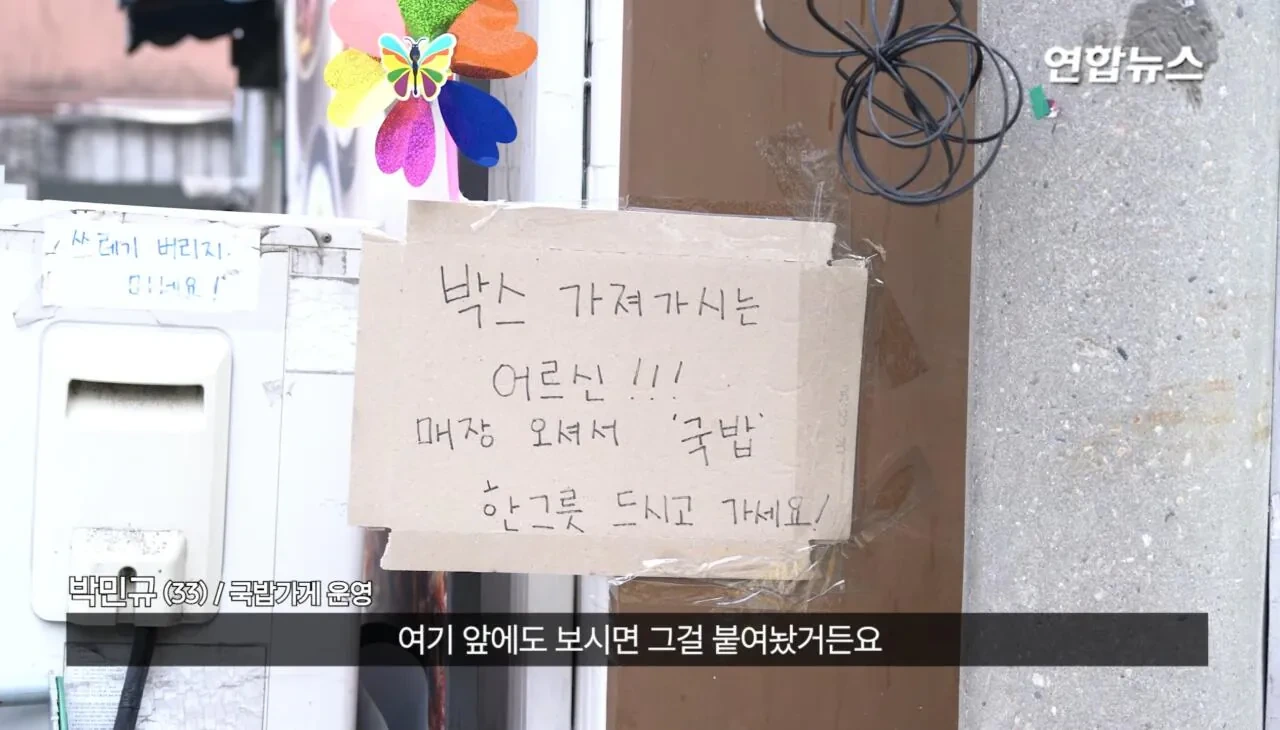 연합뉴스
쓰레기 버리지.
마세요!
박스 가져가시는
어르신!!!
매장 오셔서 '국밥'
한그릇 드시고 가세요!
박민규 (33) / 국밥가게 운영
여기 앞에도 보시면 그걸 붙여놨거든요